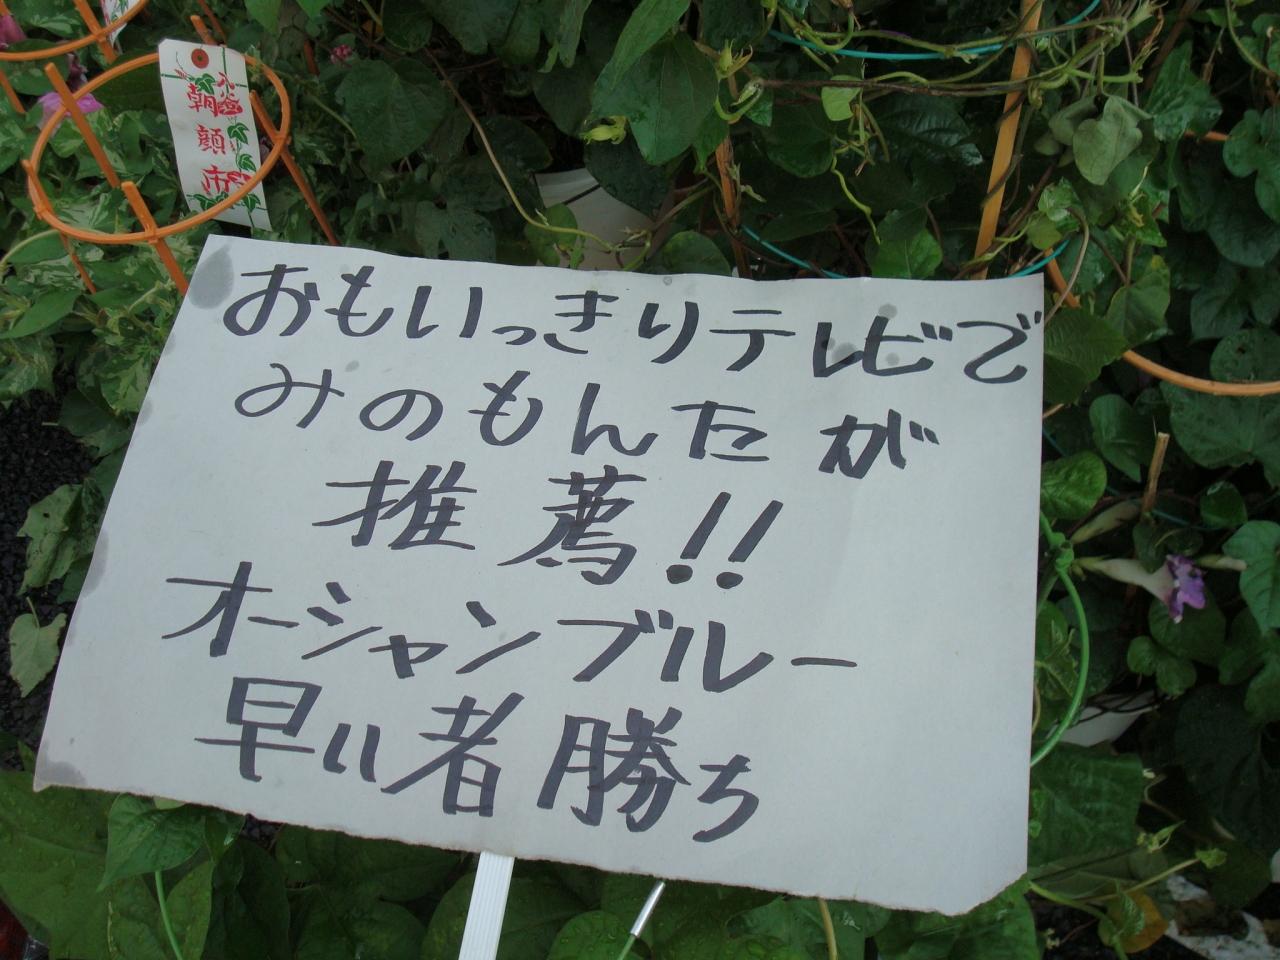 朝顔市
おもいっきりテレビで
みのもんたが
推薦!!
オーシャンブルー
早い者勝ち